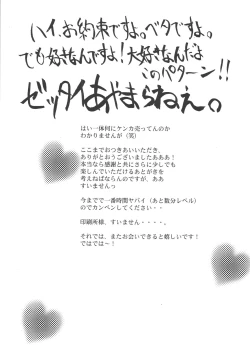 ハイ、お約束ですよ。ベタですよ。
でも好きなんですよ!大好きなんだよ
このパターン!!
ゼッタイあやまらねえ。
はい一体何にケンカ売ってんのか
わかりませんが（笑）
ここまでおつきあいいただき、
ありがとおうございましたあああ！
本当なら感謝と共にさらに少しでも
楽しんでいただけるあとがきを
考えねばならんのですが、ああ
すいませんっ
今までで一番時間ヤバイ（あと数分レベル）
のでカンベンしてください・・
印刷所様、すいません・・・・。
それでは、またお会いできると嬉しいです！
ではでは～！